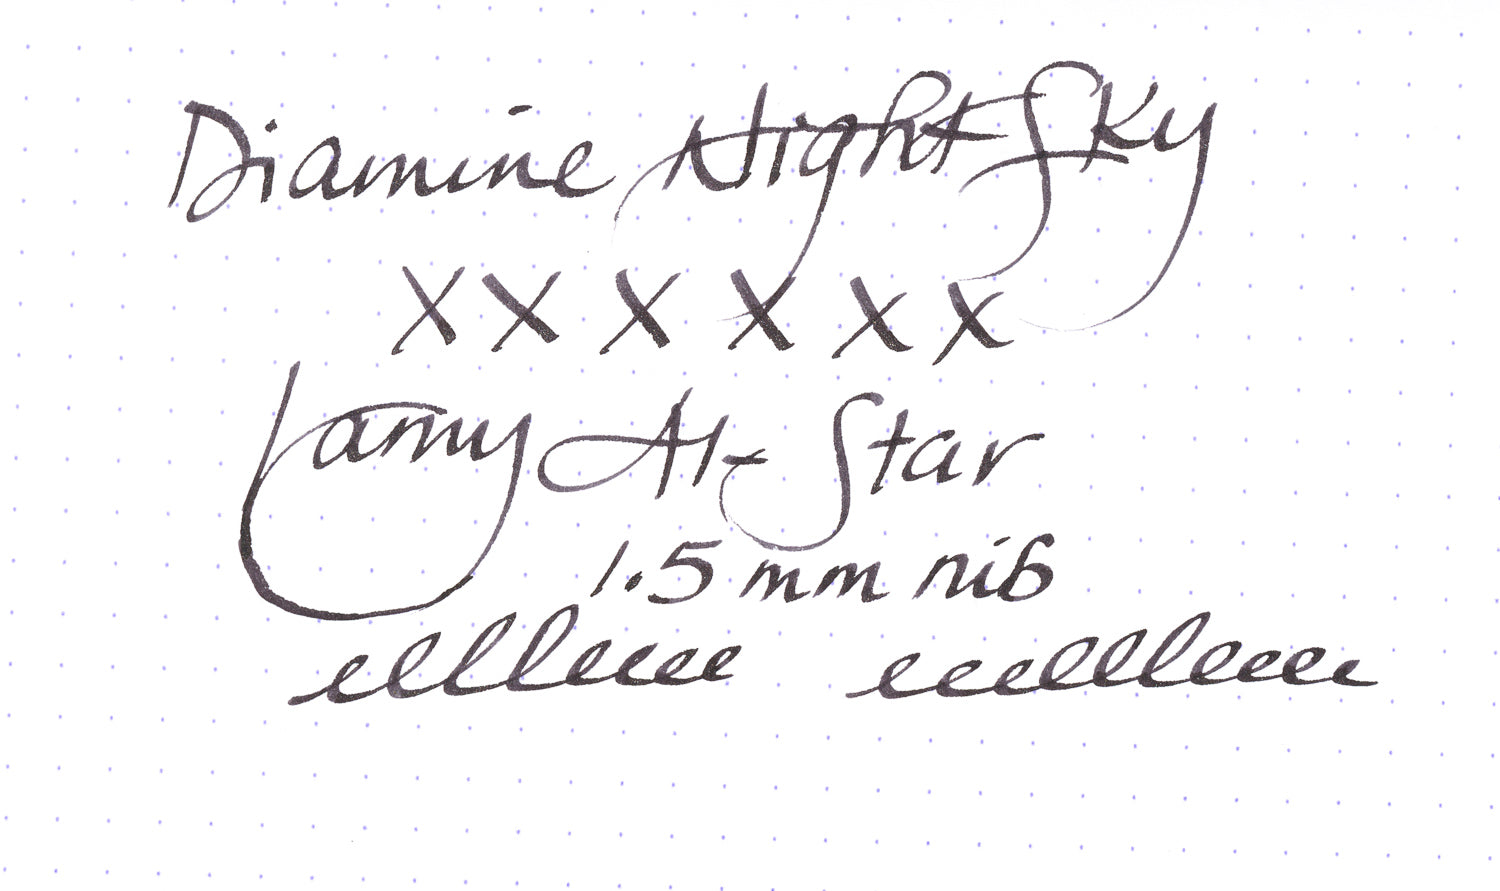 Diamine Night Sky
X X X X X X
Lamy Al-Star
1.5 mm nib
ellleeee eeeelllleeee